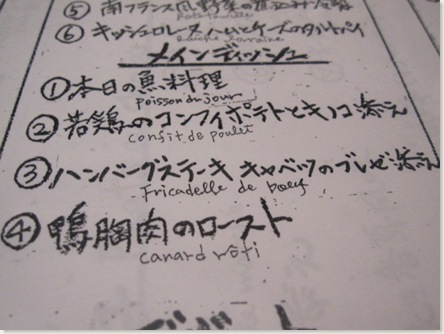 ⑤ 南フランス風野菜の煮込み
Ratatouille
⑥ キッシュロレーヌ
Quiche lorraine
メインディッシュ
① 本日の魚料理
poisson du jour
② 若鶏のコンフィ ポテトとキノコ添え
confit de poulet
③ ハンバーグステーキ キャベツのブレゼ添え
Fricadelle de boeuf
④ 鴨胸肉のロースト
canard rôti